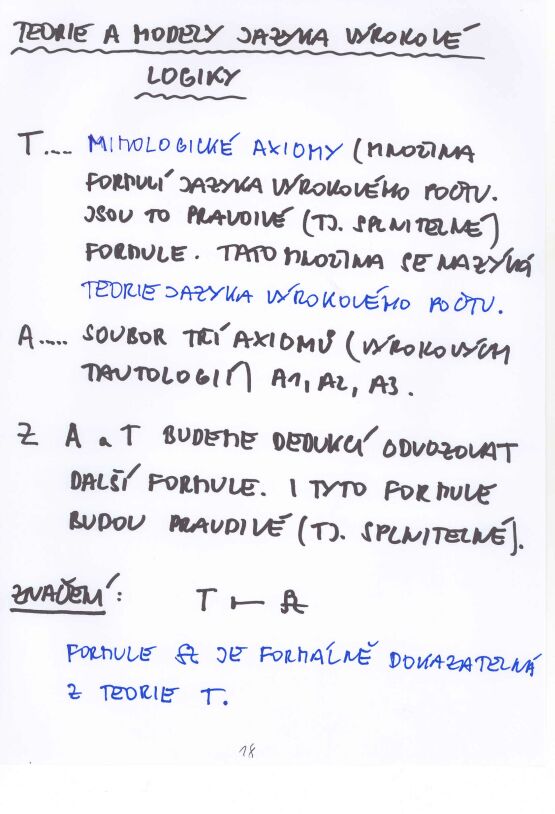 TEORIE A MODELY JAZYKA VÝROKOVÉ
LOGIKY
T.... MIMOLOGICKÉ AXIOMY (MNOŽINA
FORMULÍ JAZYKA VÝROKOVÉHO POČTU.
JSOU TO PRAVDIVÉ (TJ. SPLNITELNÉ)
FORMULE. TATO MNOŽINA SE NAZÝVÁ
TEORIE JAZYKA VÝROKOVÉHO POČTU.
A.... SOUBOR TŘÍ AXIOMŮ (VÝROKOVÝCH
TAUTOLOGIÍ) A1, A2, A3.
Z A a T BUDEME DEDUKCÍ ODVOZOVAT
DALŠÍ FORMULE. I TYTO FORMULE
BUDOU PRAVDIVÉ (TJ. SPLNITELNÉ).
ZNAČENÍ: T ⊢ A
FORMULE A JE FORMÁLNĚ DOKAZATELNÁ
Z TEORIE T.
18